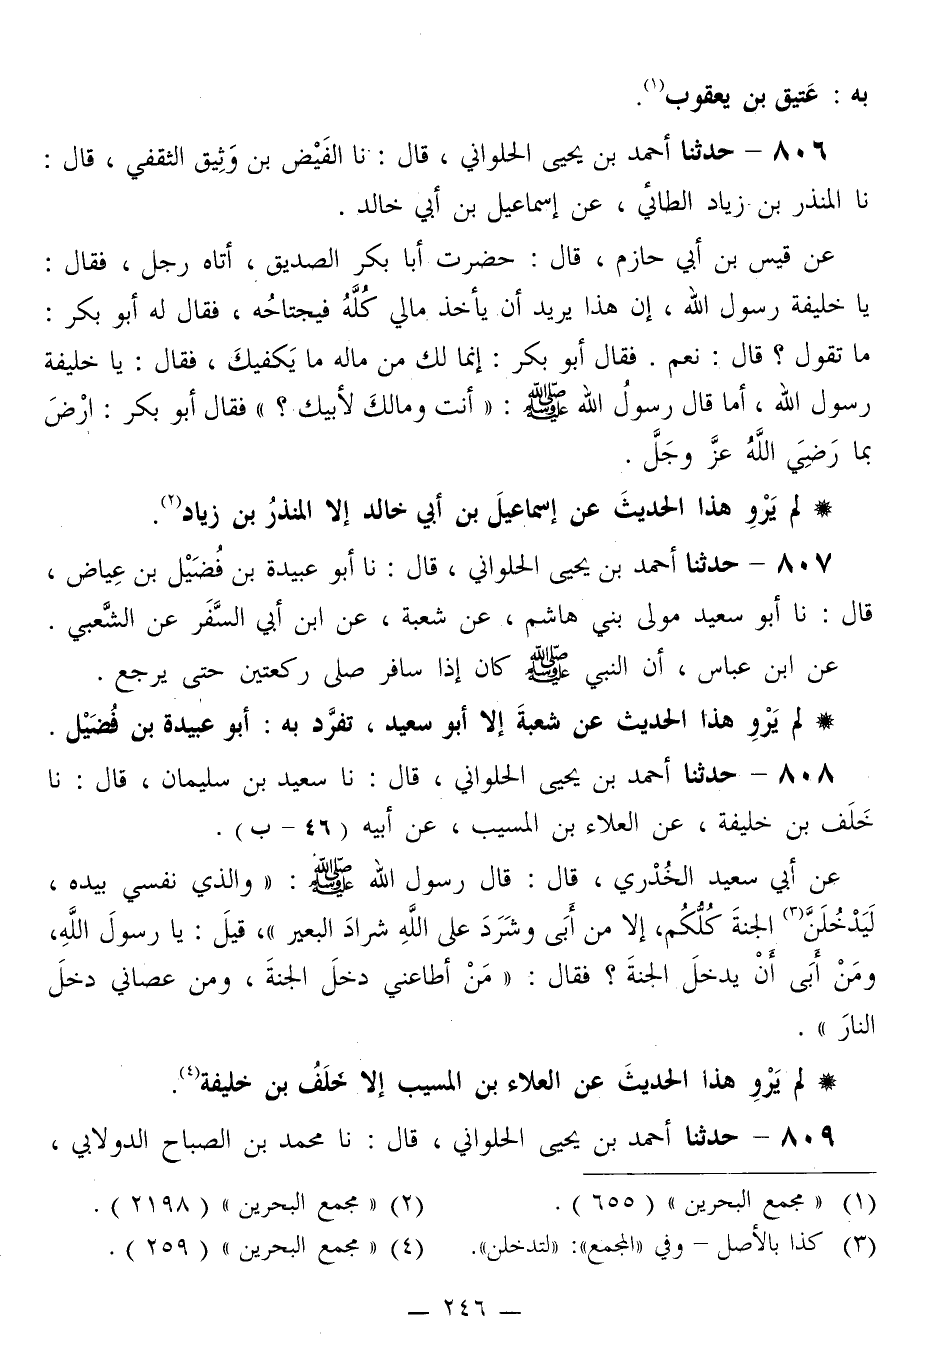 به : عَتيق بن يعقوب(١).
٨٠٦ – حدثنا أحمد بن يحيى الحلواني ، قال : نا الفَيْض بن وَثِيق الثقفي ، قال :
نا المنذر بن زياد الطائي ، عن إسماعيل بن أبي خالد .
عن قيس بن أبي حازم ، قال : حضرت أبا بكر الصديق ، أتاه رجل ، فقال :
يا خليفة رسول الله ، إن هذا يريد أن يأخذ مالي كُلَّهُ فيجتاحُه ، فقال له أبو بكر :
ما تقول ؟ قال : نعم . فقال أبو بكر : إنما لك من ماله ما يَكفيكَ ، فقال : يا خليفة
رسول الله ، أما قال رسولُ الله ﷺ : « أنت ومالكَ لأبيك ؟ » فقال أبو بكر : ارْضَ
بما رَضِيَ اللَّهُ عزَّ وجَلَّ .
* لم يَرْوِ هذا الحديثَ عن إسماعيلَ بن أبي خالد إلا المنذرُ بن زياد(٢).
٨٠٧ – حدثنا أحمد بن يحيى الحلواني ، قال : نا أبو عبيدة بن فُضَيْل بن عِياض ،
قال : نا أبو سعيد مولى بني هاشم ، عن شعبة ، عن ابن أبي السَّفَر عن الشَّعبي .
عن ابن عباس ، أن النبي ﷺ كان إذا سافر صلى ركعتين حتى يرجع .
* لم يَرْوِ هذا الحديث عن شعبةَ إلا أبو سعيد ، تفرَّد به : أبو عبيدة بن فُضَيْل .
٨٠٨ – حدثنا أحمد بن يحيى الحلواني ، قال : نا سعيد بن سليمان ، قال : نا
خَلَف بن خليفة ، عن العلاء بن المسيب ، عن أبيه ( ٤٦ – ب ) .
عن أبي سعيد الخُدْري ، قال : قال رسول الله ﷺ : « والذي نفسي بيده ،
لَيَدْخُلَنَّ(٣) الجنةَ كُلُّكُم، إلا من أَبَى وشَرَدَ على اللَّهِ شرادَ البعير »، قيلَ : يا رسولَ اللَّهِ،
ومَنْ أَبَى أَنْ يدخلَ الجنةَ ؟ فقال : « مَنْ أطاعني دخلَ الجنةَ ، ومن عصاني دخلَ
النارَ » .
* لم يَرْوِ هذا الحديثَ عن العلاء بن المسيب إلا خَلَفُ بن خليفة(٤).
٨٠٩ – حدثنا أحمد بن يحيى الحلواني ، قال : نا محمد بن الصباح الدولابي ،
(١) « مجمع البحرين » ( ٦٥٥ ) . (٢) « مجمع البحرين » ( ٢١٩٨ ) .
(٣) كذا بالأصل – وفي «المجمع»: «لتدخلن». (٤) « مجمع البحرين » ( ٢٥٩ ) .
– ٢٤٦ –